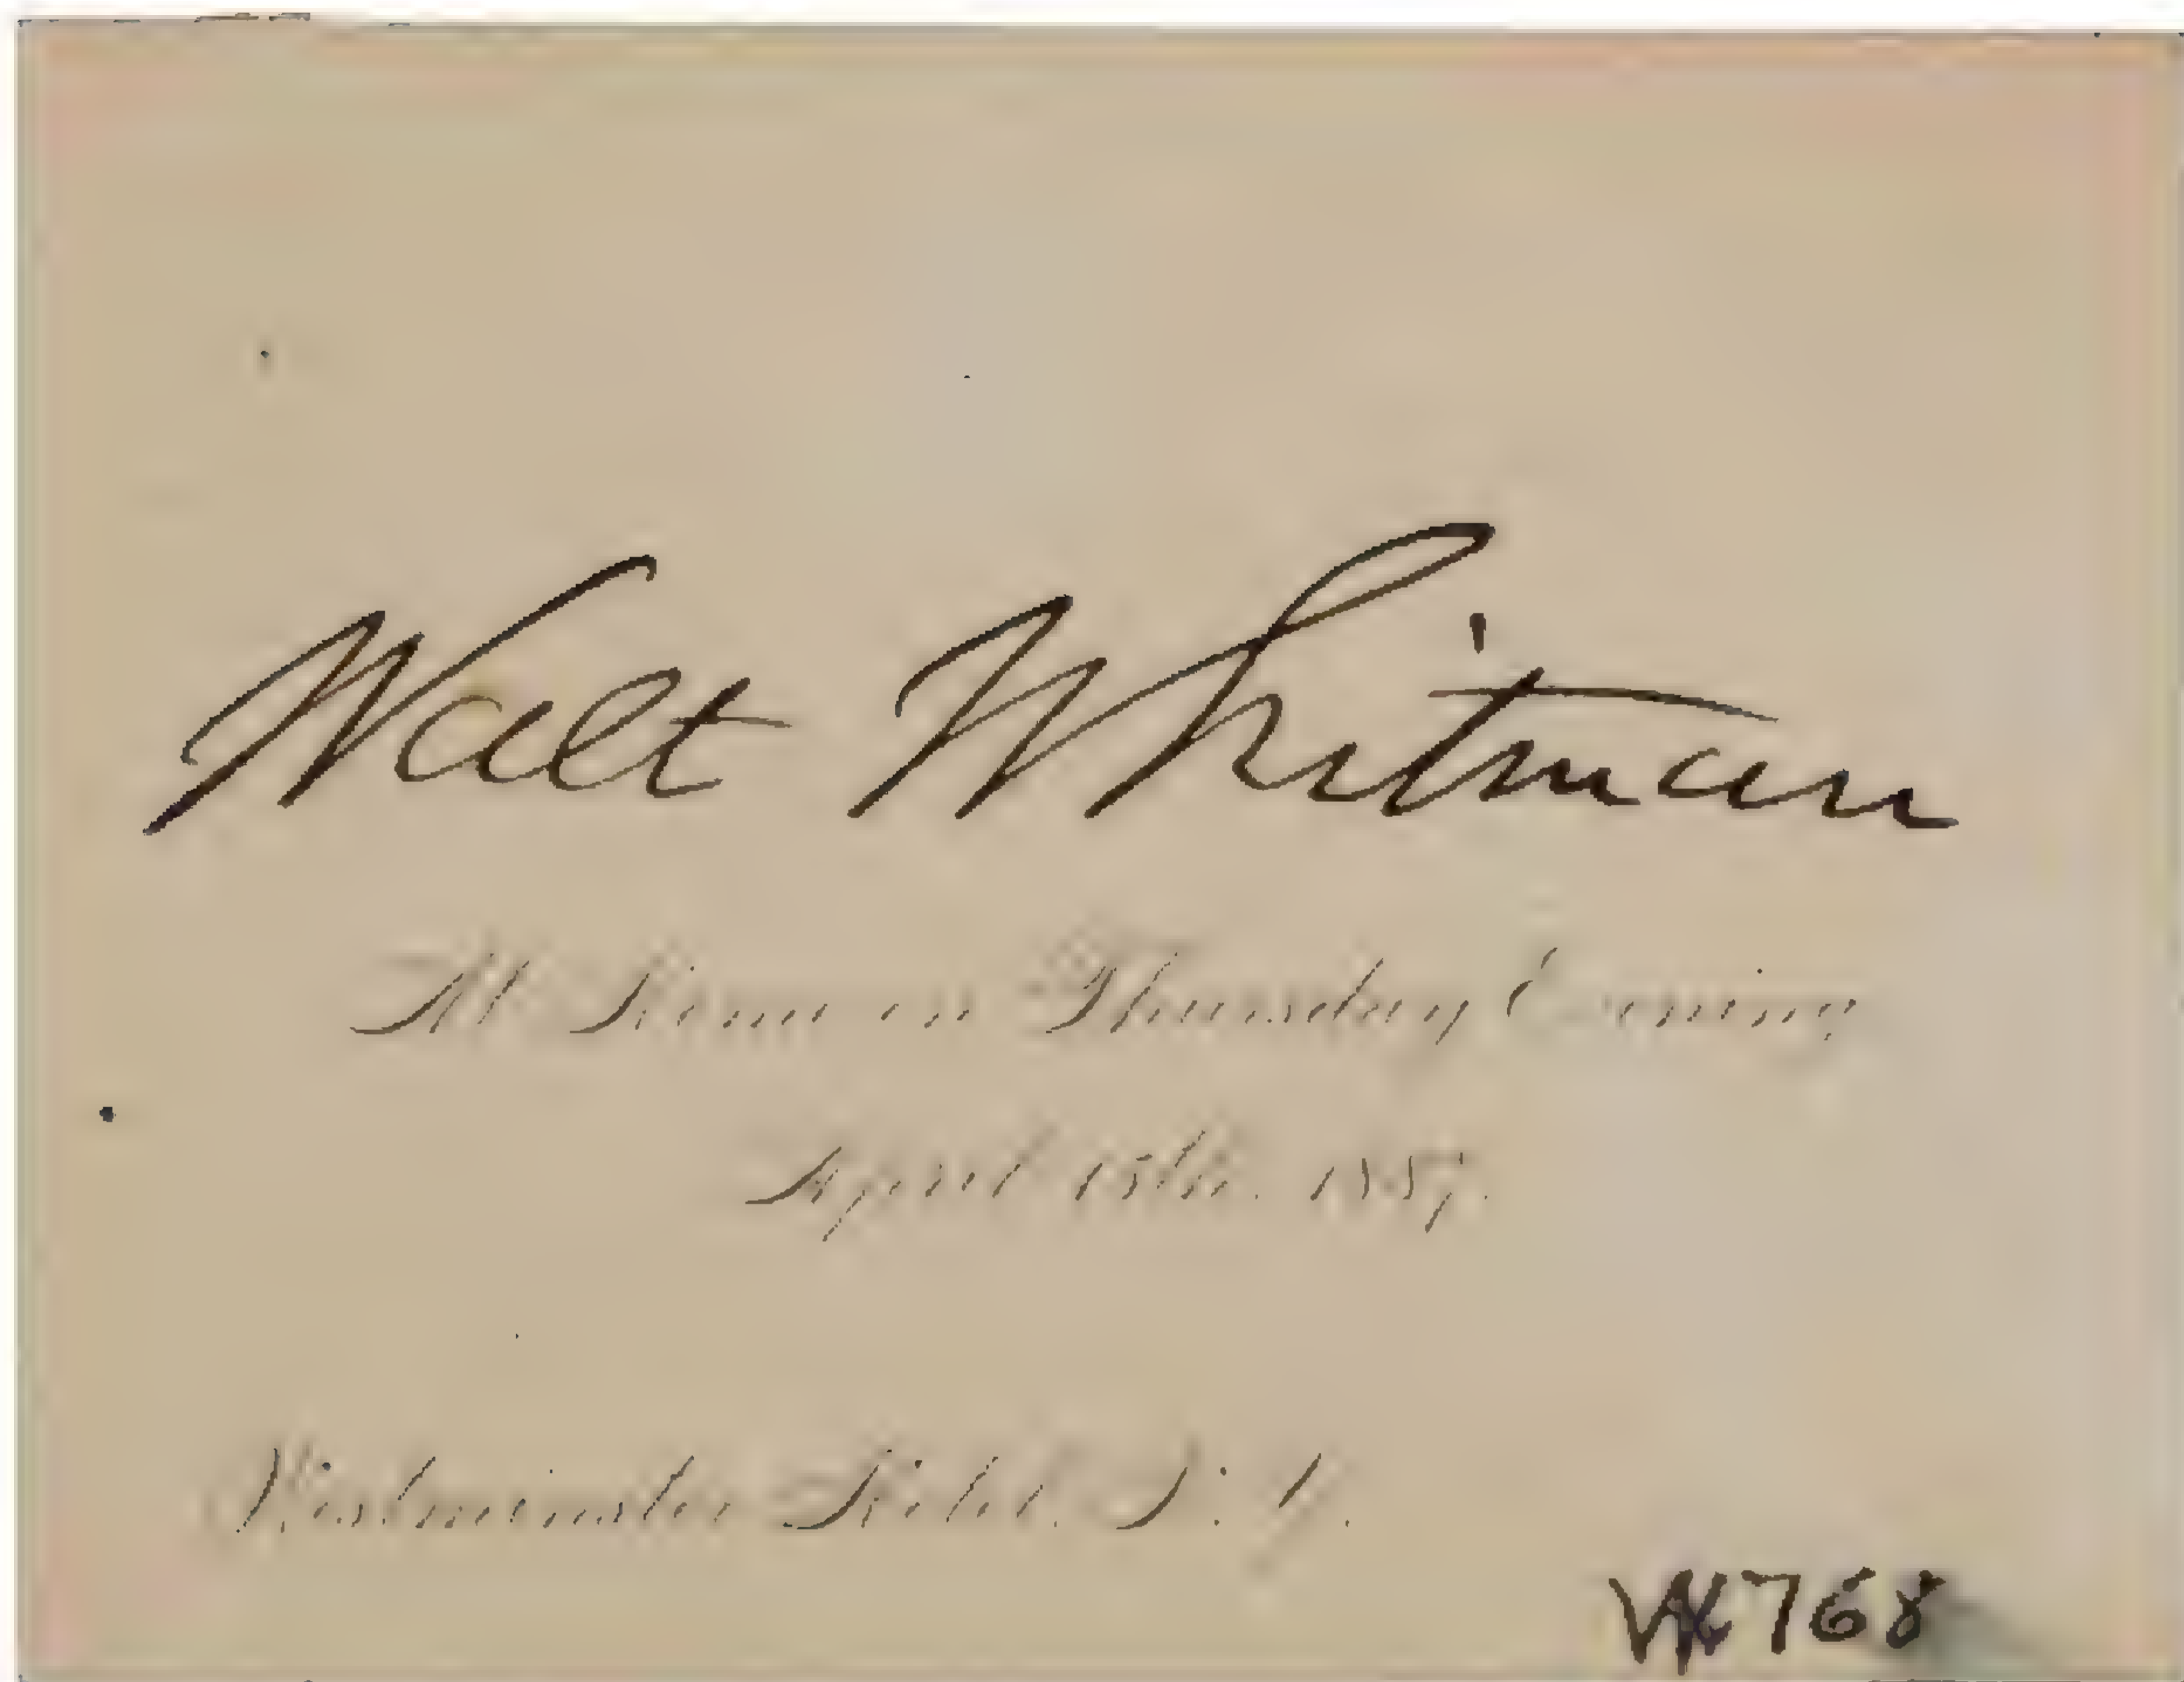 Walt Whitman
At Home on Thursday Evening
April 15th. 1887.
Westminster Hotel. N. Y.
768